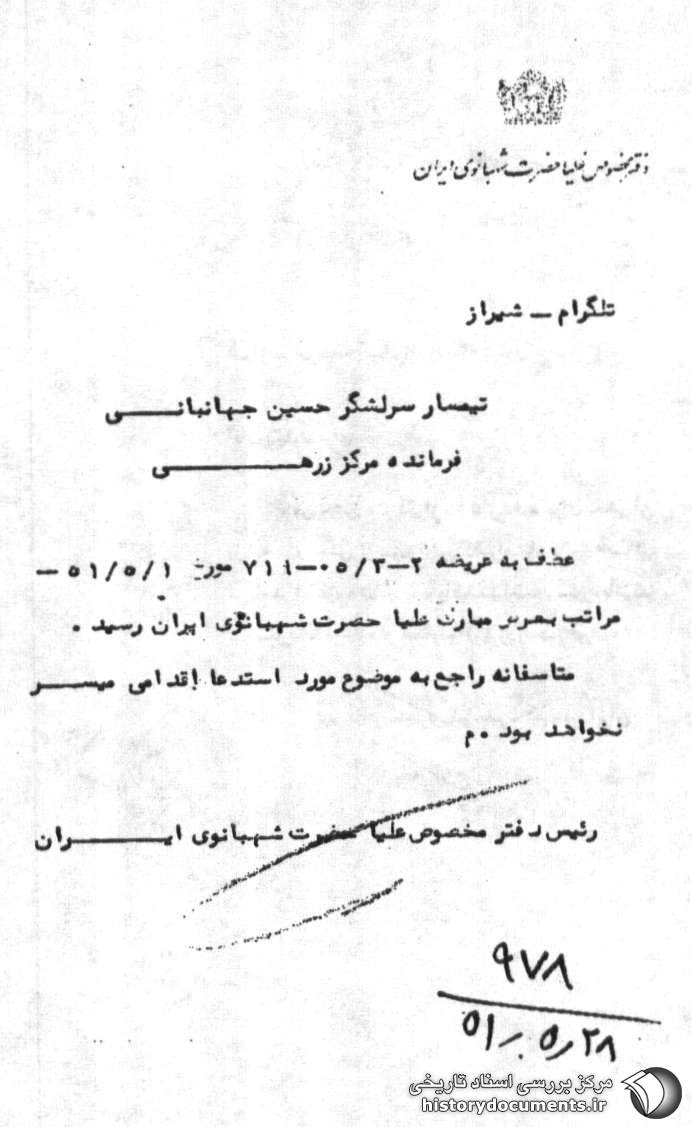 دفتر مخصوص علیا حضرت شهبانوی ایران
تلگرام - شیراز
تیمسار سرلشگر حسین جهانبانی
فرمانده مرکز زرهی
عطف به عریضه مورخ ۵۱/۵/۱ -
مراتب بعرض مبارک علیا حضرت شهبانوی ایران رسید .
متاسفانه راجع به موضوع مورد استدعا اقدامی میسر
نخواهد بود .م
رئیس دفتر مخصوص علیا حضرت شهبانوی ایران
۹۷۸
۵۱،۵،۲۸
مرکز بررسی اسناد تاریخی
historydocuments.ir